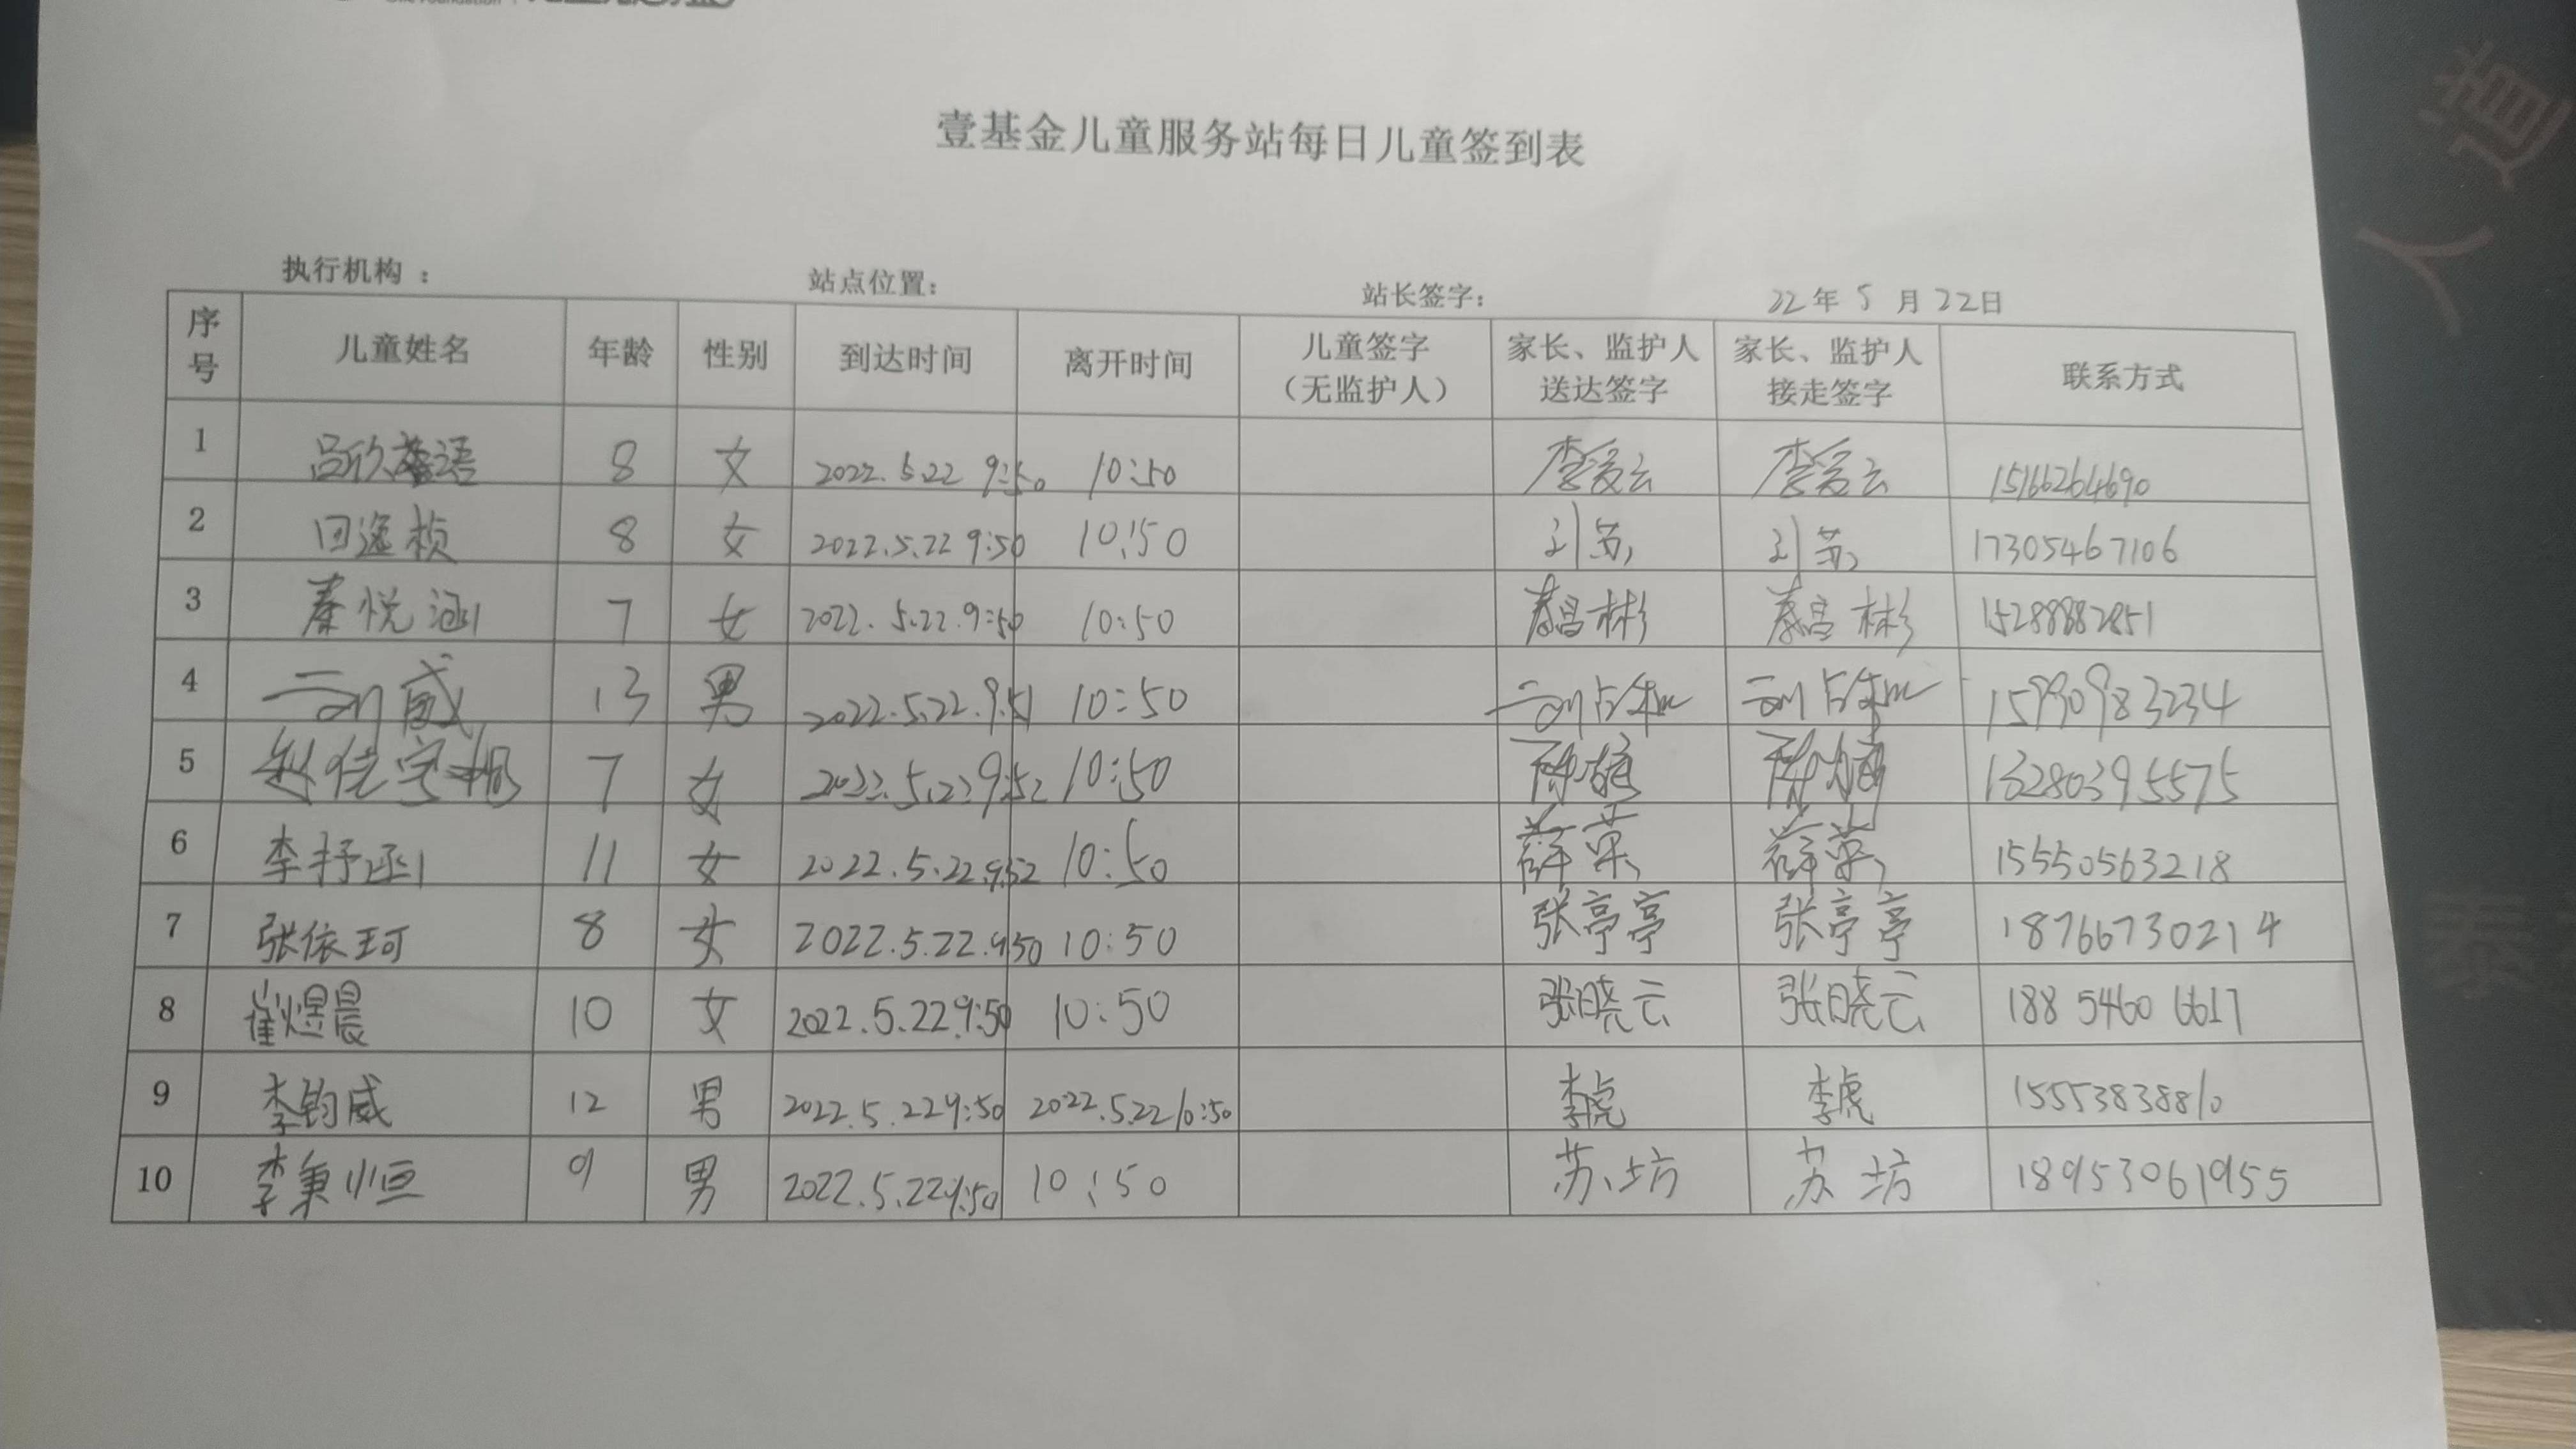 壹基金儿童服务站每日儿童签到表
执行机构： 站点位置： 站长签字： 22年5月22日
序号 儿童姓名 年龄 性别 到达时间 离开时间 儿童签字（无监护人） 家长、监护人送达签字 家长、监护人接走签字 联系方式
1 吕欣语 8 女 2022.5.22 9:50 10:50 李爱云 李爱云 15166264690
2 回逸桢 8 女 2022.5.22 9:50 10:50 刘苏 刘苏 17305467106
3 秦悦涵 7 女 2022.5.22.9:50 10:50 秦昌彬 秦昌彬 15288882851
4 威 13 男 2022.5.22.9:51 10:50 15990983234
5 赵佳 7 女 2022.5.22 9:52 10:50 13280395575
6 李抒函 11 女 2022.5.22.9:52 10:50 薛荣 薛荣 15550563218
7 张依珂 8 女 2022.5.22.9:50 10:50 张亭亭 张亭亭 18766730214
8 崔煜晨 10 女 2022.5.22 9:50 10:50 张晓云 张晓云 188 5460 6617
9 李钧威 12 男 2022.5.22 9:50 2022.5.22 10:50 李虎 李虎 15553838810
10 李秉恒 9 男 2022.5.22 9:50 10:50 苏坊 苏坊 18953061955
人道
泰